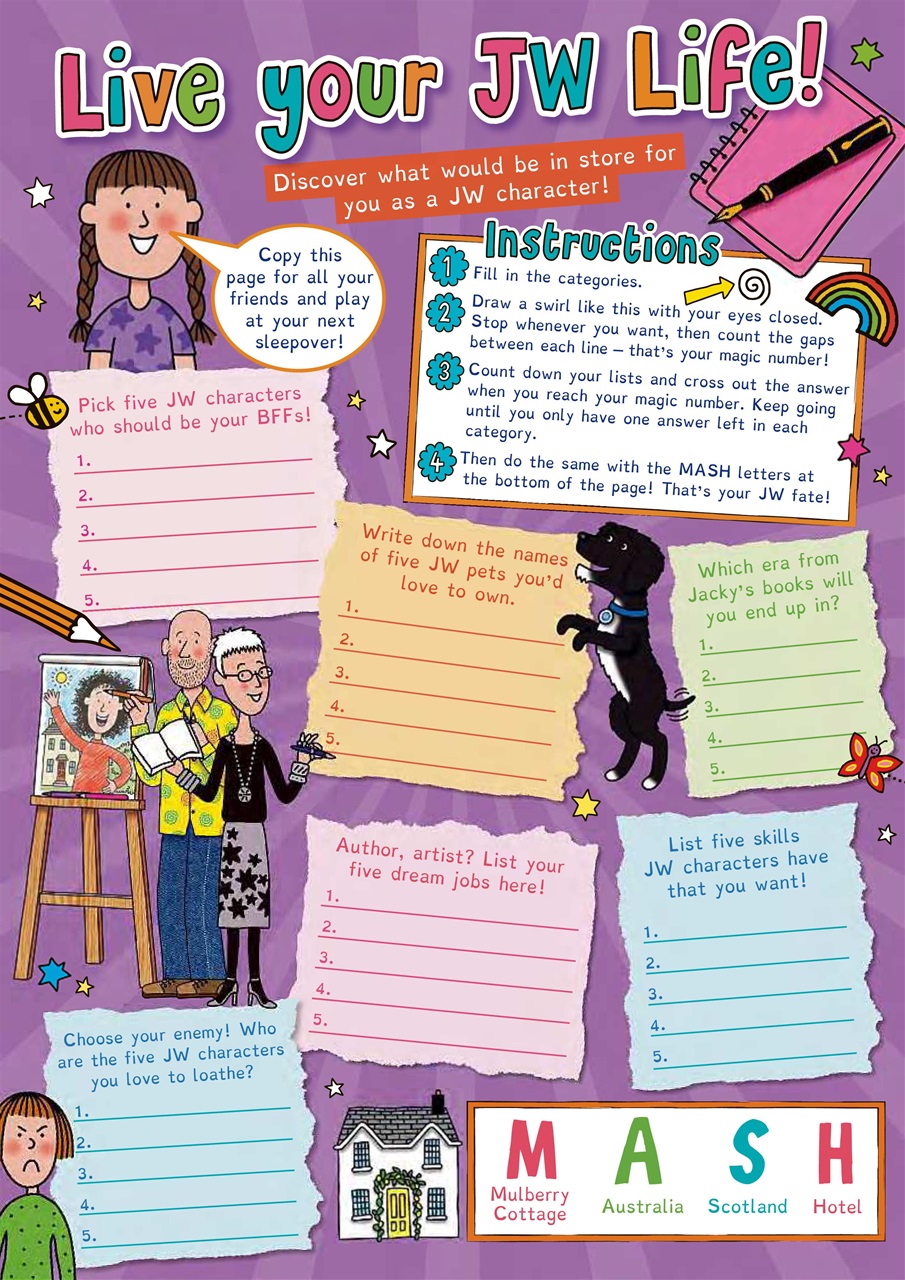 Live your JW Life!
Discover what would be in store for
you as a JW character!
Copy this
page for all your
friends and play
at your next
sleepover!
Instructions
1 Fill in the categories.
2 Draw a swirl like this with your eyes closed.
Stop whenever you want, then count the gaps
between each line – that's your magic number!
3 Count down your lists and cross out the answer
when you reach your magic number. Keep going
until you only have one answer left in each
category.
4 Then do the same with the MASH letters at
the bottom of the page! That's your JW fate!
Pick five JW characters
who should be your BFFs!
1.
2.
3.
4.
5.
Write down the names
of five JW pets you'd
love to own.
1.
2.
3.
4.
5.
Which era from
Jacky's books will
you end up in?
1.
2.
3.
4.
5.
Author, artist? List your
five dream jobs here!
1.
2.
3.
4.
5.
List five skills
JW characters have
that you want!
1.
2.
3.
4.
5.
Choose your enemy! Who
are the five JW characters
you love to loathe?
1.
2.
3.
4.
5.
M A S H
Mulberry
Cottage
Australia
Scotland
Hotel